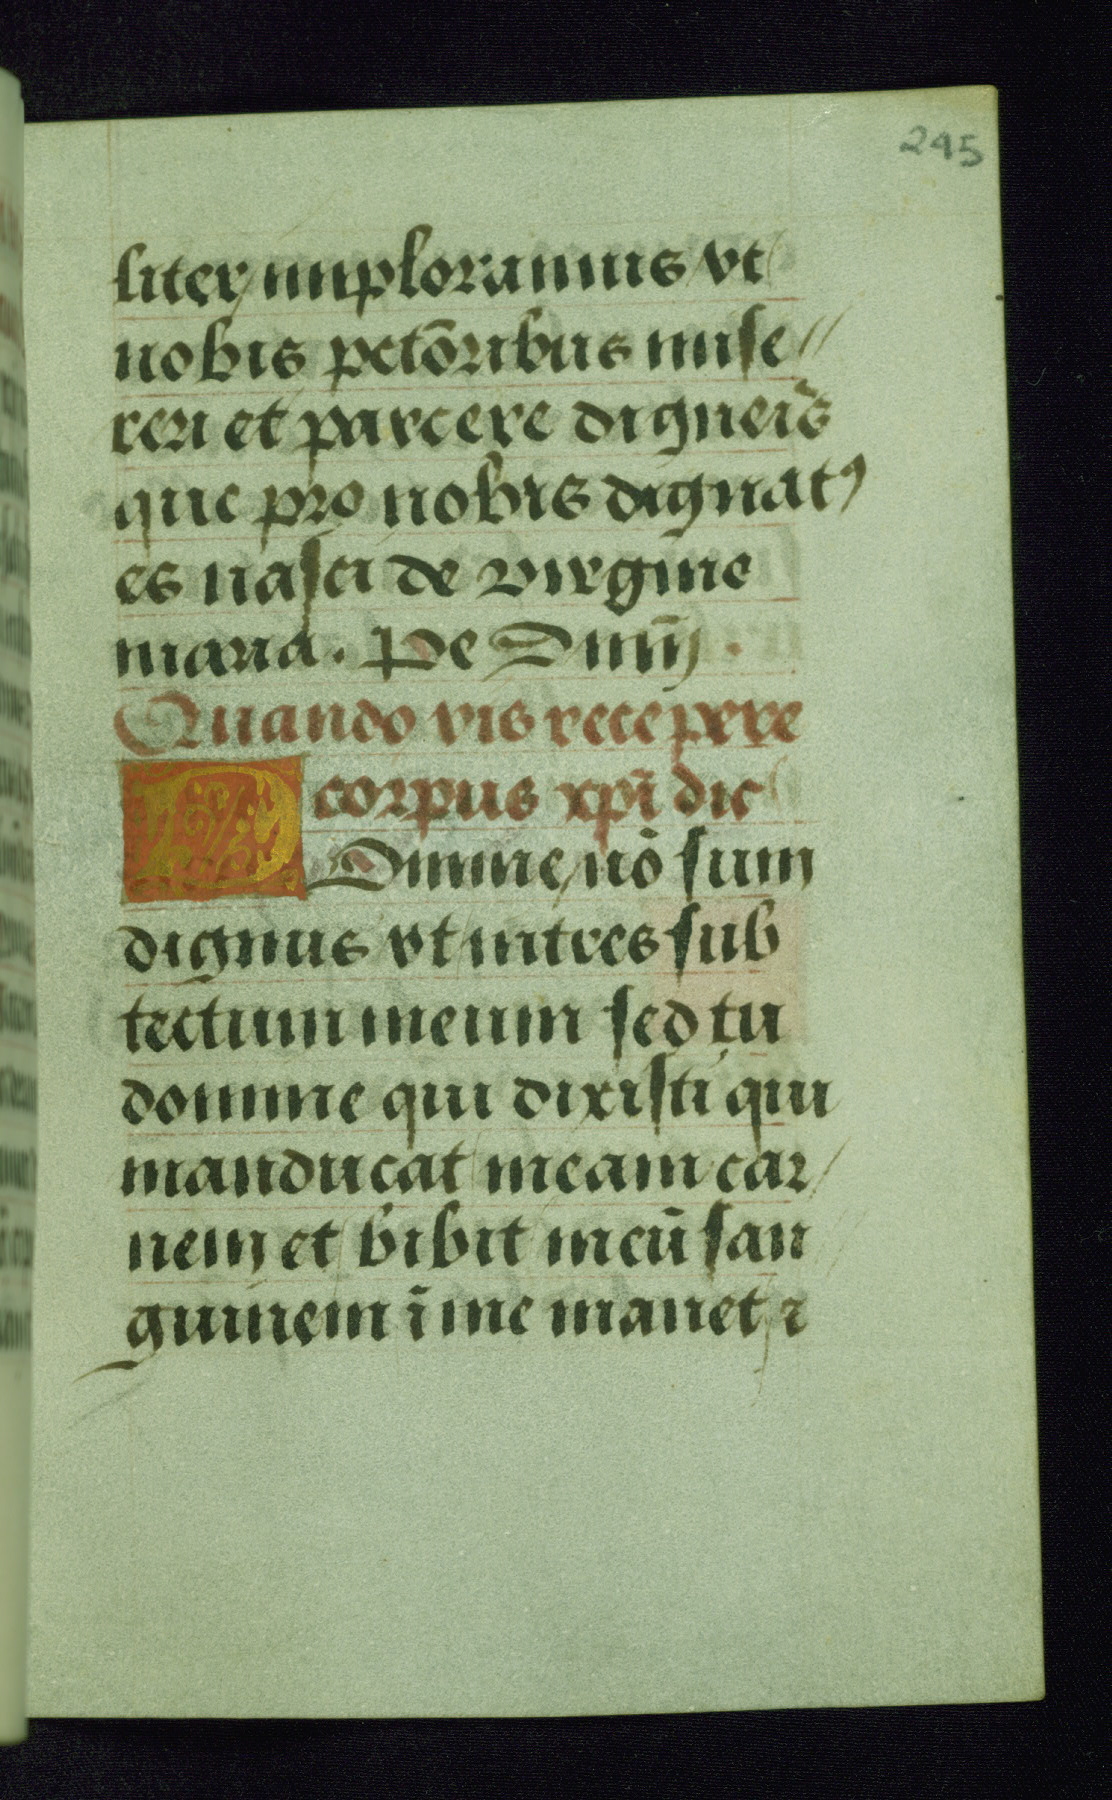 245
liter imploramus vt
nobis pctōribus mise
reri et parcere digneis̄
que pro nobis dignatꝰ
es nasci de virgine
maria. Pe Dnm̄.
Quando vis recepere
corpus xp̄i dic
Domine nō sum
dignus vt intres sub
tectum meum sed tu
domine qui dixisti qui
manducat meam car
nem et bibit meū san
guinem ī me manet ⁊